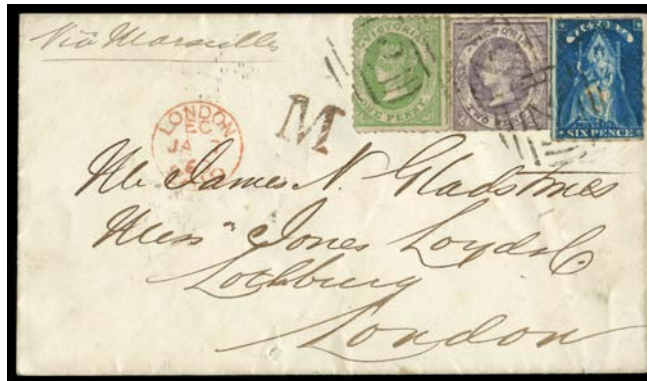 Via Marseilles
VICTORIA
ONE PENNY
VICTORIA
TWO
VICTORIA
SIX PENCE
M
LONDON
EC
JA 7
Mr James N. Gladstones
Messrs Jones Loyd & Co
Lothbury
London